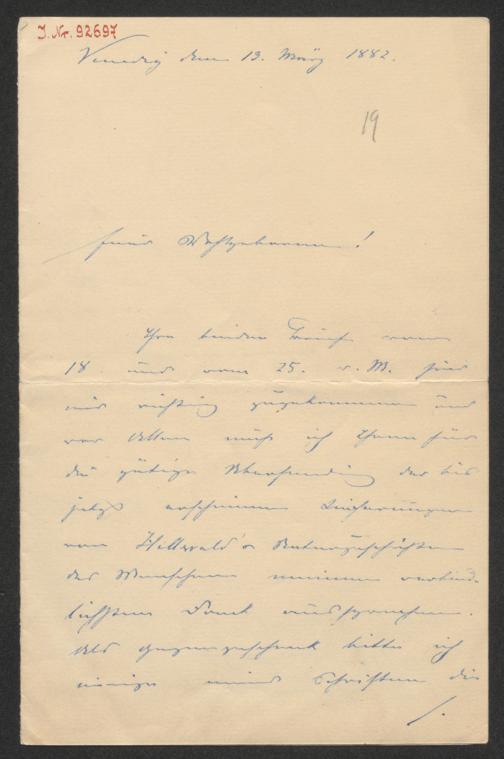 J. Nr. 92697
Venedig den 13. März 1882.
19
Euer Wohlgeboren!
Ihre beiden Briefe vom
18. und vom 25. v. M. sind
mir richtig zugekommen und
vor Allem muß ich Ihnen für
die gütige Übersendung der bis
jetzt erschienenen Lieferungen
von Hellwald's Naturgeschichte
des Menschen meinen verbind-
lichsten Dank aussprechen.
Als Gegengeschenk bitte ich
einige meiner Schriften die